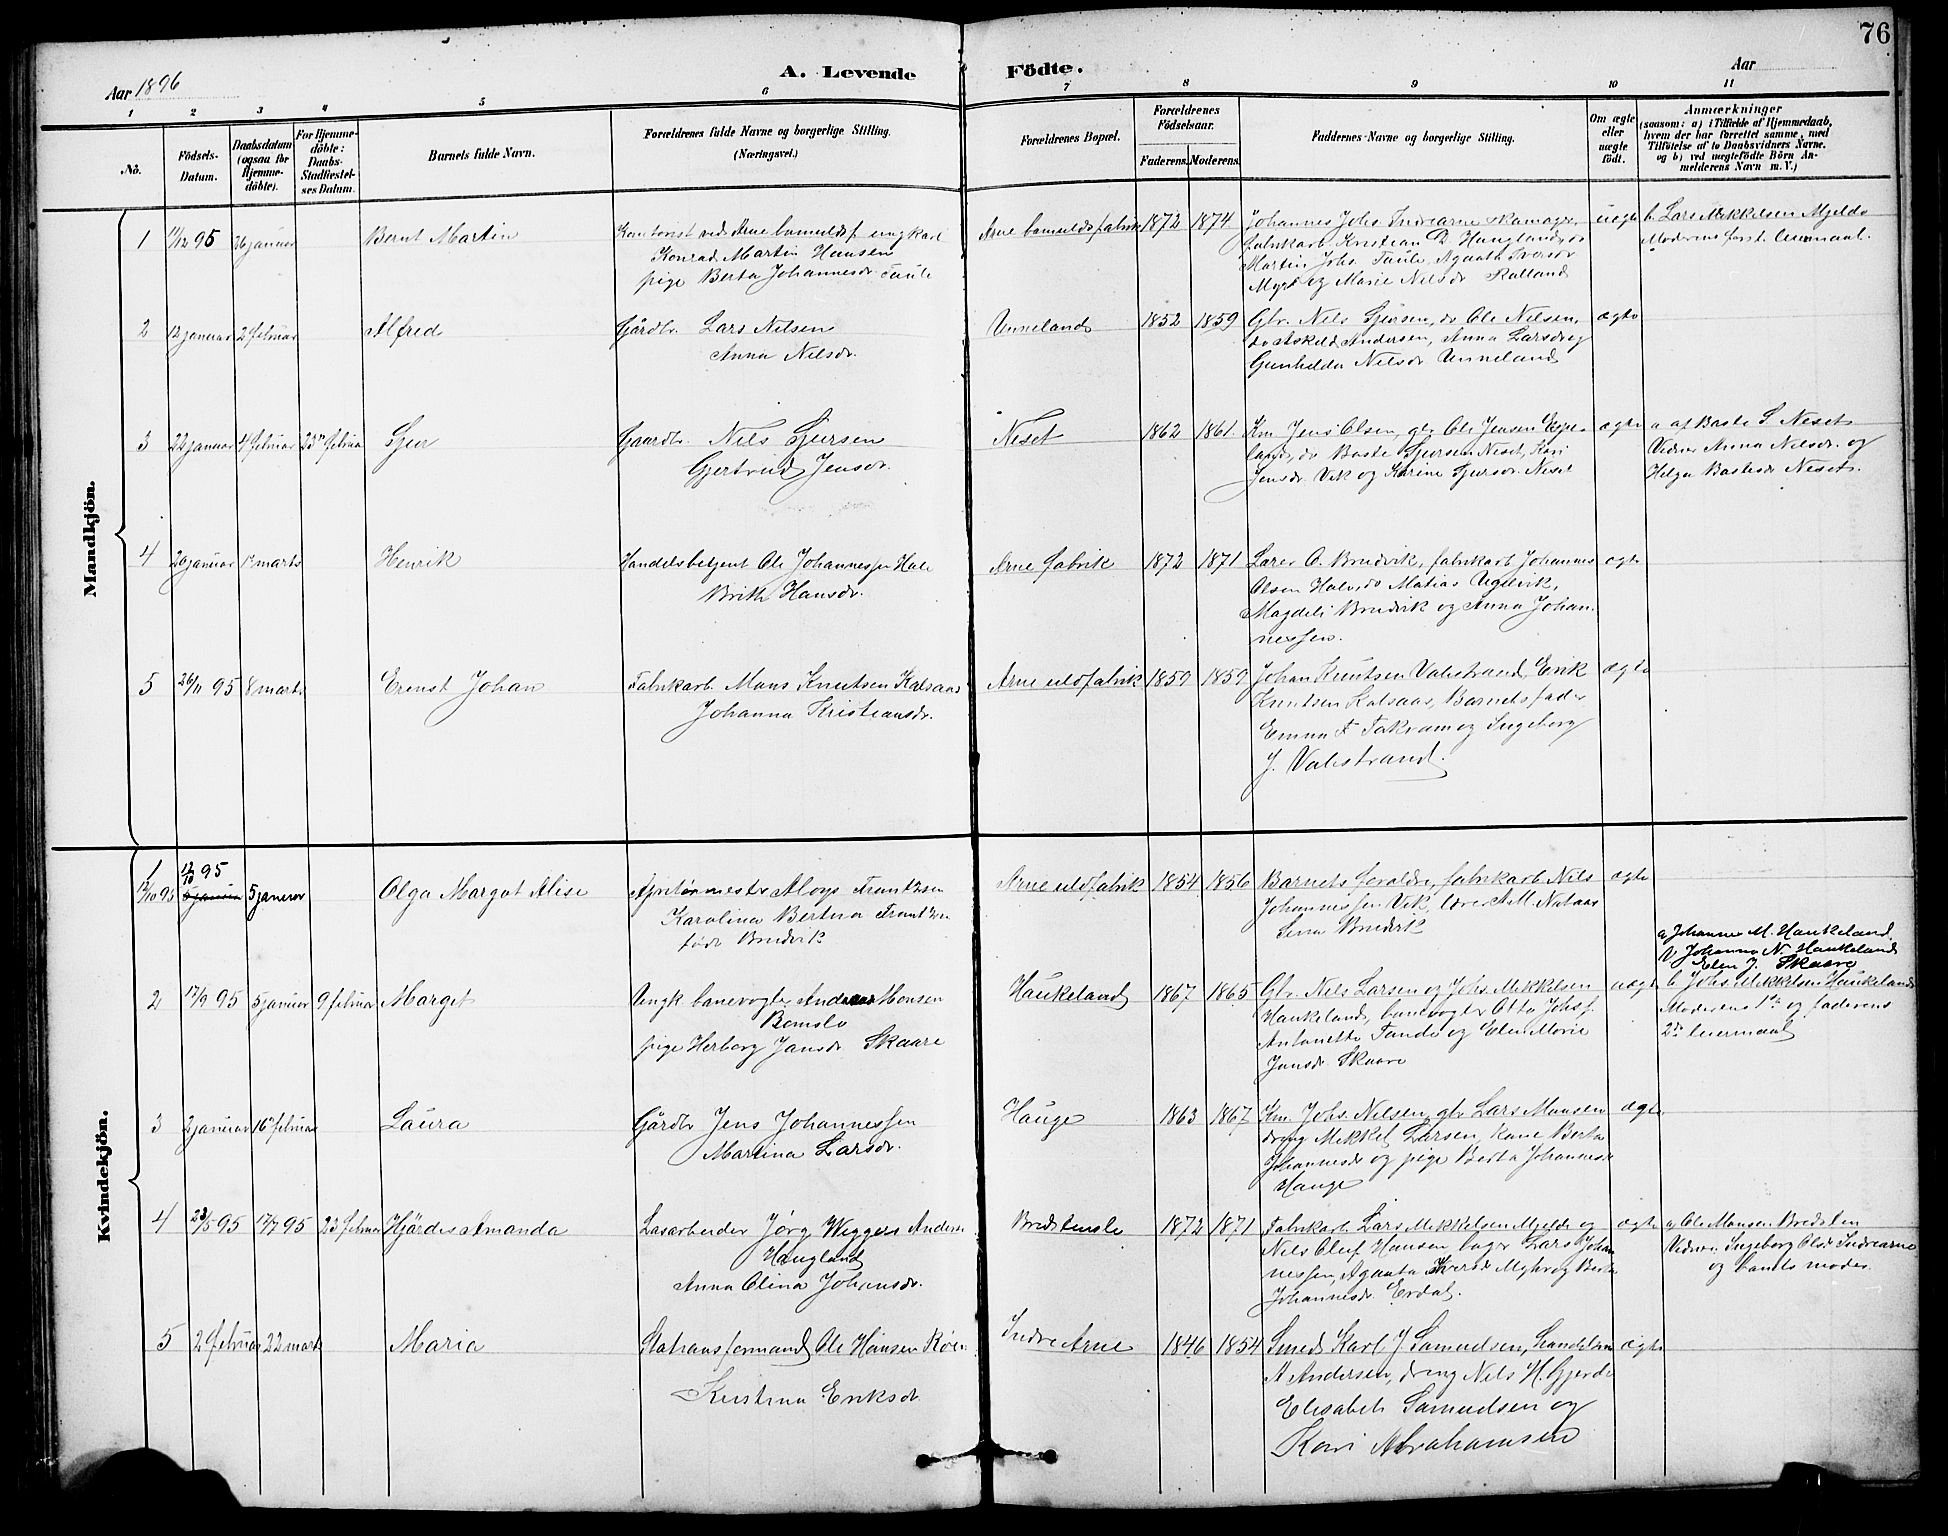 76
Aar 1896
A. Levende Födte.
Aar
1 2 3 4 5 6 7 8 9 10 11
No.
Födsels-Datum.
Daabsdatum (ogsaa for Hjemmedöbte).
For Hjemmedöbte: Daabs-Stadfæstelses Datum.
Barnets fulde Navn.
Forældrenes fulde Navne og borgerlige Stilling. (Næringsvei.)
Forældrenes Bopæl.
Forældrenes Födselsaar.
Faderens. Moderens.
Faddernes Navne og borgerlige Stilling.
Om ægte eller uægte födt.
Anmærkninger
(saasom: a) i Tilfælde af Hjemmedaab, hvem der har forrettet samme, med Tilföielse af to Daabsvidners Navne, og b) ved uægtefödte Börn Anmelderens Navn m. V.)
Mandkjön.
1 11/12 95 26 januar Bernt Martin
Kontorist ved Arne bomuldsf. ungkarl
Konrad Martin Hansen
pige Berta Johannesdr. Taule
Arne bomuldsfabrik 1872 1874
Johannes Johs. Indrearne skomager,
fabrikarb. Kristian D. Haugland, do
Martin Johs. Taule, Agaata Iversdr
Myrk og Marie Nilsdr Kalland
uægte
b. Lars Mikkelsen Mjelde
Moderens første leiermaal.
2 12 januar 2 februar Alfred
Gårdbr. Lars Nilsen
Anna Nilsdr.
Unneland 1852 1859
Gbr. Nils Sjursen, do Ole Nilsen,
do Askild Andersen, Anna Larsdr og
Gunhilda Nilsdr Unneland
ægte
3 22 januar 4 februar 23 februar Sjur
Gaardbr. Nils Sjursen
Gjertrud Jensdr.
Neset 1862 1861
Km. Jens Olsen, gbr Ole Jensen Espeland,
do Baste Sjursen Neset, Kari
Jensdr. Vik og Karine Sjursdr. Neset
ægte
a af Baste S Neset
Vidner Anna Nilsdr. og
Helga Bastesdr Neset.
4 20 januar 1 marts Henrik
Handelsbetjent Ole Johannessen Hole
Brith Hansdr.
Arne fabrik 1872 1871
Lærer O. Brudvik, fabrikarb. Johannes
Olsen Hole, do Matias Ugdvik,
Magdeli Brudvik og Anna Johannessen.
ægte
5 26/11 95 8 marts Ernst Johan
Fabrikarb. Mons Knutsen Kalsaas
Johanna Kristiansdr.
Arne uldfabrik 1859 1859
Johan Knutsen Valestrand, Erik
Knutsen Kalsaas, Barnets fader
Emma F Takvam og Ingeborg
J. Valestrand.
ægte
Kvindekjön.
1 12/10 95 5 januar Olga Margot Alise
12/10 95
Apritørmester Aloys Frantzen
Karolina Bertina Frantzen
født Brudvik
Arne uldfabrik 1854 1856
Barnets foræld­re, fabrikarb. Nils
Johannessen Vik, lærer A.M. Nataas
Sina Brudvik
ægte
2 17/9 95 5 januar 9 februar Marget
Ungk banevogter Anders Monsen
Bømslo
pige Herborg Jansdr. Skaare
Haukeland 1867 1865
Gbr. Nils Larsen og Johs. Mikkelsen
Haukeland, banevogter Otto Johsf.
Antonette Tande og Elen Marie
Jansdr Skaare
uægte
a Johannes M. Haukeland
V Johanna N. Haukeland
Elen J. Skaare
b Johs Mikkelsen Haukeland
Moderens 1ste og faderens
2det leiermaal
3 2 januar 16 februar Laura
Gårdbr Jens Johannessen
Martina Larsdr.
Hauge 1863 1867
Km. Johs. Nilsen, gbr Lars Monsen
dreng Mikkel Larsen, kone Berta
Johannesdr og pige Berta Johannesdr
Hauge
ægte
4 23/5 95 17/7 95 23 februar Hjördis Amanda
Løsarbeider Jörg Wiggers Anders
Haugland
Anna Olina Johansdr.
Bredstensle 1872 1871
Fabrikarb. Lars Mikkelsen Mjelde og
Nils Oluf Hansen, bager Lars Johannessen,
Agaata Iversdr Myhr og Berta
Johannesdr. Erdal.
ægte
a Ole Monsen Bredsten
Vidner: Ingeborg Olsdr Indrearne
og barnets moder.
5 2 februar 22 marts Maria
Stationsformand Ole Hansen Røen
Kristina Eriksdr
Indre Arne 1846 1854
Smed Karl J. Samuelsen, handelsm
A Andersen, dreng Nils H. Gjerde
Elisabeth Samuelsen og
Kari Abrahamsen
ægte